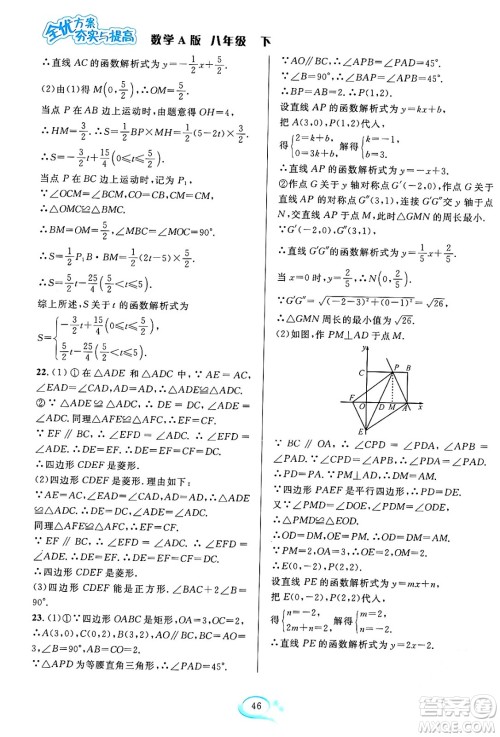 全优方案
夯实与提高
数学A版 八年级 下
∴直线 AC 的函数解析式为 y=-1/2x+5/2.
(2)由(1)得 M(0,5/2).
当点 P 在 AB 边上运动时,由题意得 OH=4,
∴HM=3/2.∴S=1/2BP×MH=3/4(5-2t)×3/2.
∴S=-3/2t+15/4(0≤t<5/2).
当点 P 在 BC 边上运动时,记为 P₁,
∵∠OCM=∠BCM,CO=CB,CM=CM,
∴△OMC≌△BMC.
∴BM=OM=5/2,∠MBC=∠MOC=90°.
∴S=1/2P₁B·BM=1/2(2t-5)×5/2.
∴S=5/2t-25/4(5/2<t≤5).
综上所述,S 关于 t 的函数解析式为
S={-3/2t+15/4(0≤t<5/2),
5/2t-25/4(5/2<t≤5).
22.(1)①在△ADE 和△ADC 中,∵AE=AC,
∠EAD=∠CAD,AD=AD,∴△ADE≌△ADC.
②∵△ADE≌△ADC,∴DE=DC,∠ADE=
∠ADC.同理△AFE≌△AFC,∴EF=CF.
∵EF∥BC,∴∠EFD=∠ADC.∴∠ADE=
∠EFD.∴DE=EF.∴DE=EF=CF=DC.
∴四边形 CDEF 是菱形.
(2)四边形 CDEF 是菱形.理由如下:
∵AE=AC,∠EAD=∠CAD,AD=AD,
∴△ADE≌△ADC.∴DE=DC,∠ADE=∠ADC.
同理△AFE≌△AFC,∴EF=CF.
∵EF∥BC,∴∠EFD=∠ADC.∴∠ADE=
∠EFD.∴DE=EF.∴DE=EF=CF=DC.
∴四边形 CDEF 是菱形.
(3)四边形 CDEF 能是正方形.∠BAC+2∠B=
90°.
23.(1)①∵四边形 OABC 是矩形,A(3,0),
C(0,2),∴B(3,2),AO∥BC.∴∠OAP=∠APB.
∵△APD 为等腰直角三角形,∴∠PAD=45°.
∵AO∥BC,∠BPA=∠PAD=45°.
∵∠B=90°,∴∠BAP=∠BPA=45°.
∴BP=AB=2.∴P(1,2).
设直线 AP 的函数解析式为 y=kx+b,
将 A(3,0),P(1,2)代入,
得{2=k+b, 0=3k+b, 解得{k=-1, b=3.
∴直线 AP 的函数解析式为 y=-x+3.
②作点 G 关于 y 轴对称点 G′(-2,0),点 G 关于
直线 AP 对称点 G″(3,1),连接 G′G″交 y 轴于点
N,交直线 AP 于点 M,此时△GMN 的周长最小.
∵G′(-2,0),G″(3,1),
∴直线 G′G″的函数解析式为 y=1/5x+2/5.
当 x=0 时,y=2/5,∴N(0,2/5).
∵G′G″=√((-2-3)²+(0-1)²)=√26,
∴△GMN 周长的最小值为 √26.
(2)如图,作 PM⊥AD 于点 M.
y
C P B
O D M A x
E
∵BC∥OA,∴∠CPD=∠PDA.∵∠CPD=
∠APB,∴∠PDA=∠APB=∠PAD.∴PD=
PA.∵PM⊥AD,∴DM=AM.
∵四边形 PAEF 是平行四边形,∴PD=DE.
∵∠PMD=∠DOE,∠ODE=∠PDM,
∴△PMD≌△EOD.∴OD=DM,OE=PM.
∴OD=DM=MA.
∵PM=2,OA=3,∴OE=2,OM=2.
∴E(0,-2),P(2,2).
设直线 PE 的函数解析式为 y=mx+n,
将 E(0,-2),P(2,2)代入,
得{n=-2, 2m+n=2, 解得{m=2, n=-2.
∴直线 PE 的函数解析式为 y=2x-2.
46